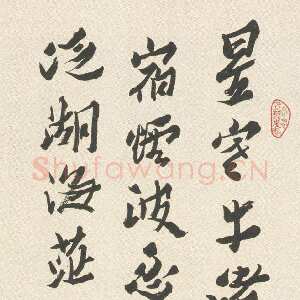 星寒牛
宿煙波
泛湖海茫
Shufawang.CN